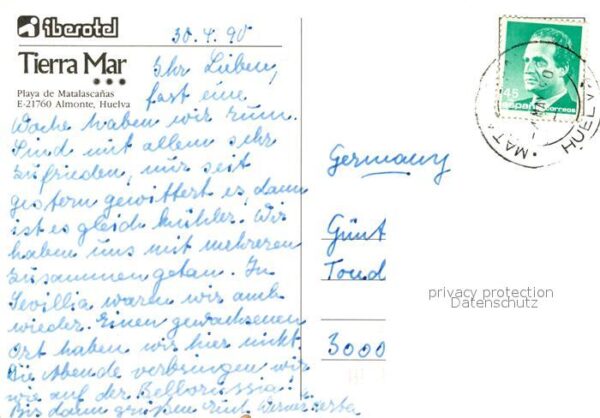 iberotel
30.4.90
Tierra Mar
Playa de Matalascañas
E-21760 Almonte, Huelva
Ihr Lieben,
fast eine
Woche haben wir rum.
Sind mit allem sehr
zufrieden, nur seit
gestern gewittert es, dann
ist es gleich kühler. Wir
haben uns mit mehreren
zusammen getan. In
Sevillia waren wir auch
wieder. Einen gewachsenen
Ort haben wir hier nicht.
Die Abende verbringen wir
wie auf der
Bis dann grüßen
45
España correos
MAT
HUELV
Germany
Günt
3000
privacy protection
Datenschutz